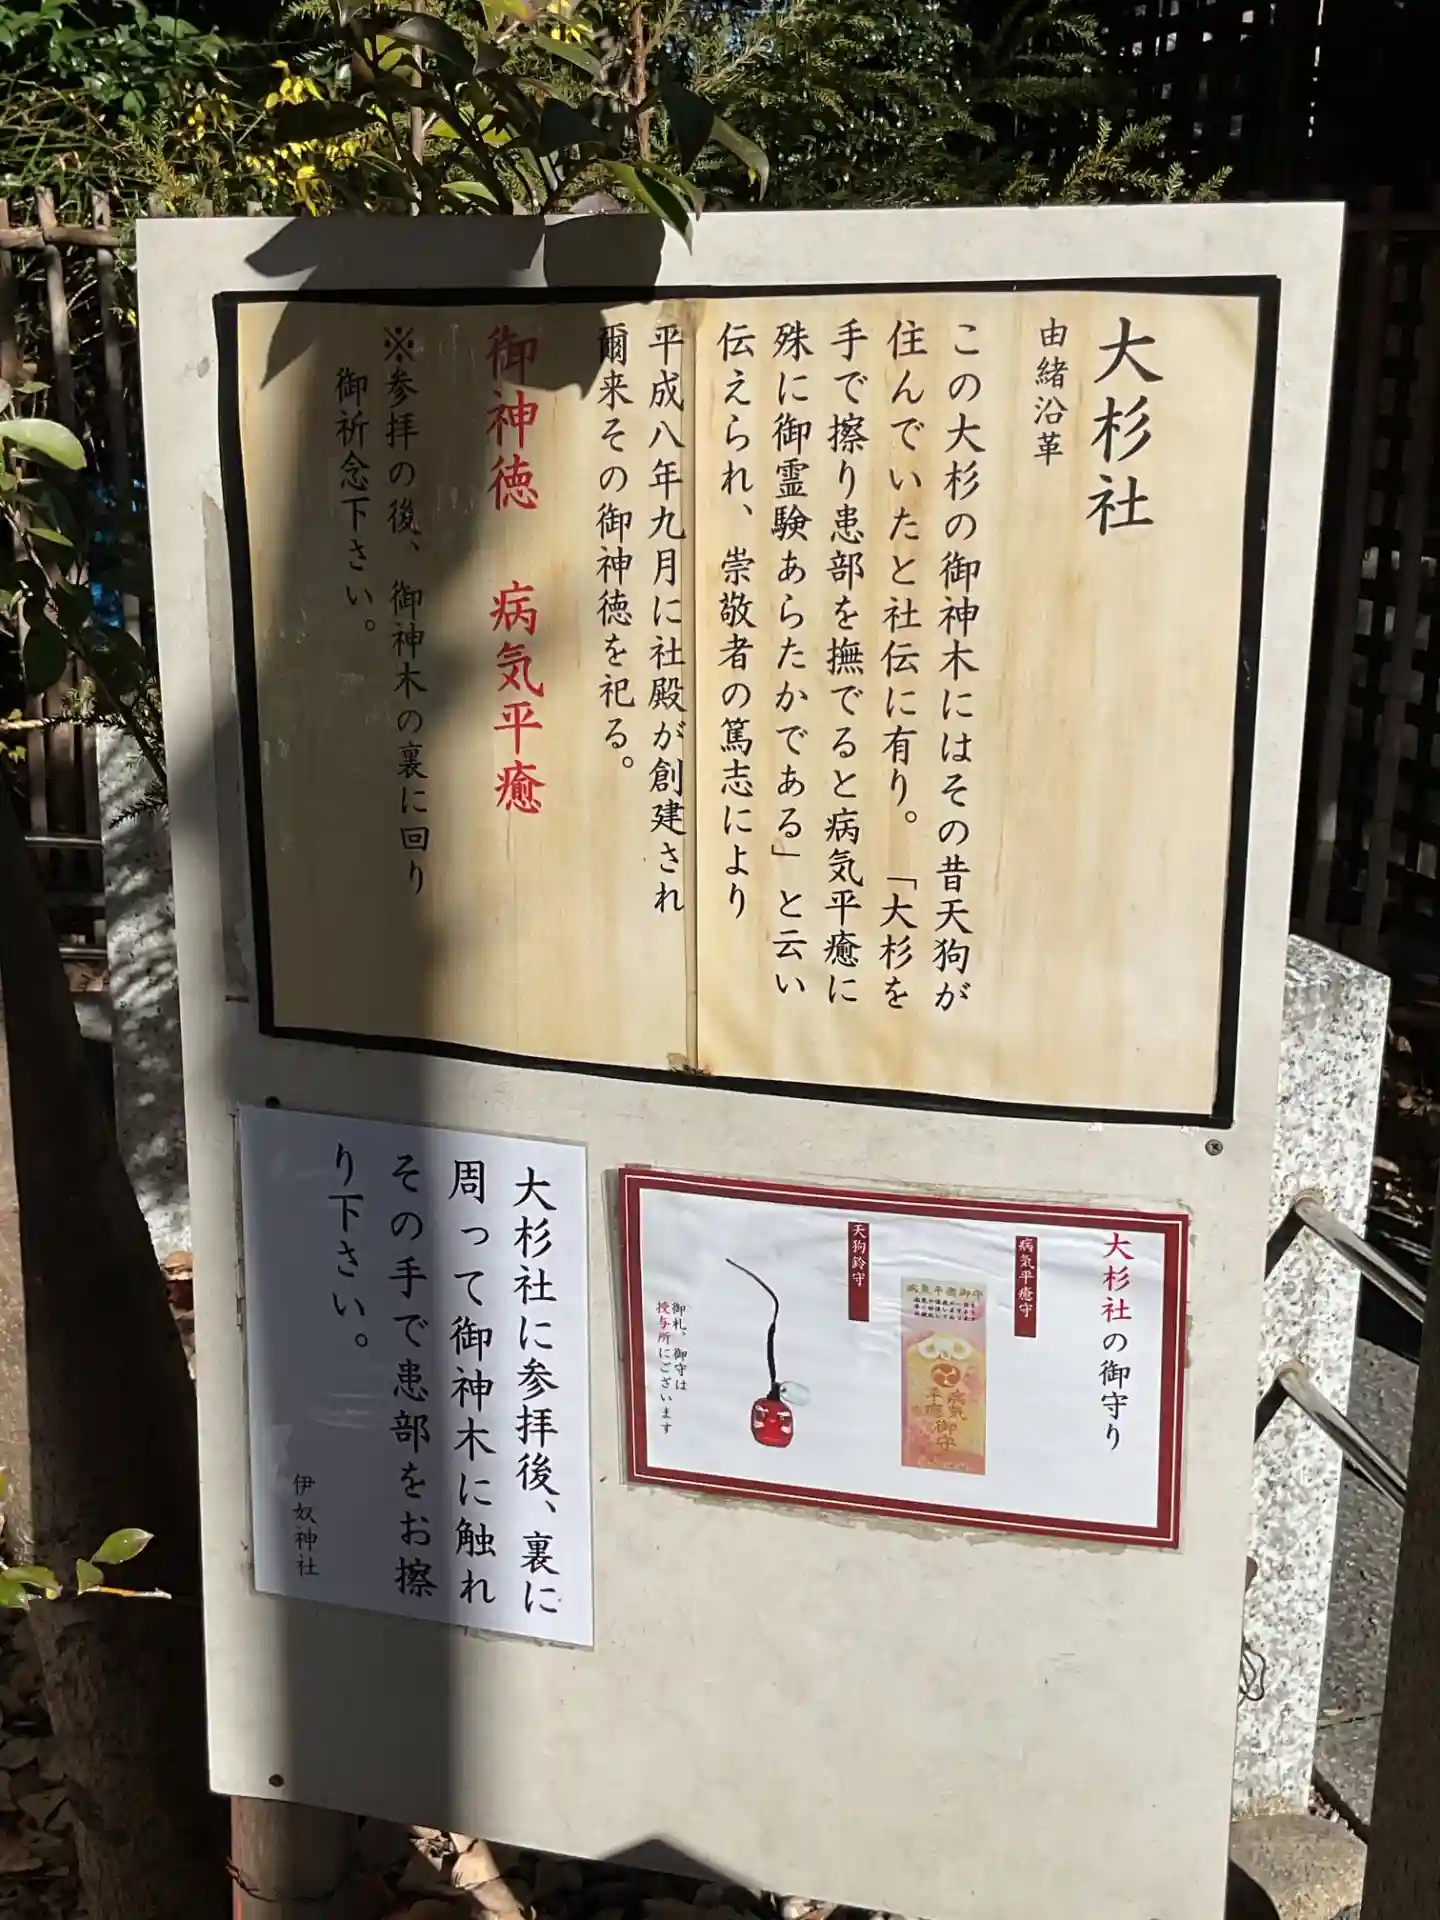 大杉社
由緒沿革
この大杉の御神木にはその昔天狗が
住んでいたと社伝に有り。「大杉を
手で擦り患部を撫でると病気平癒に
殊に御霊験あらたかである」と云い
伝えられ、崇敬者の篤志により
平成八年九月に社殿が創建され
爾来その御神徳を祀る。
御神徳 病気平癒
※参拝の後、御神木の裏に回り
御祈念下さい。
大杉社の御守り
病気平癒守
病気平癒御守
病気
平癒御守
天狗鈴守
御札、御守は
授与所にございます
大杉社に参拝後、裏に
周って御神木に触れ
その手で患部をお擦
り下さい。
伊奴神社